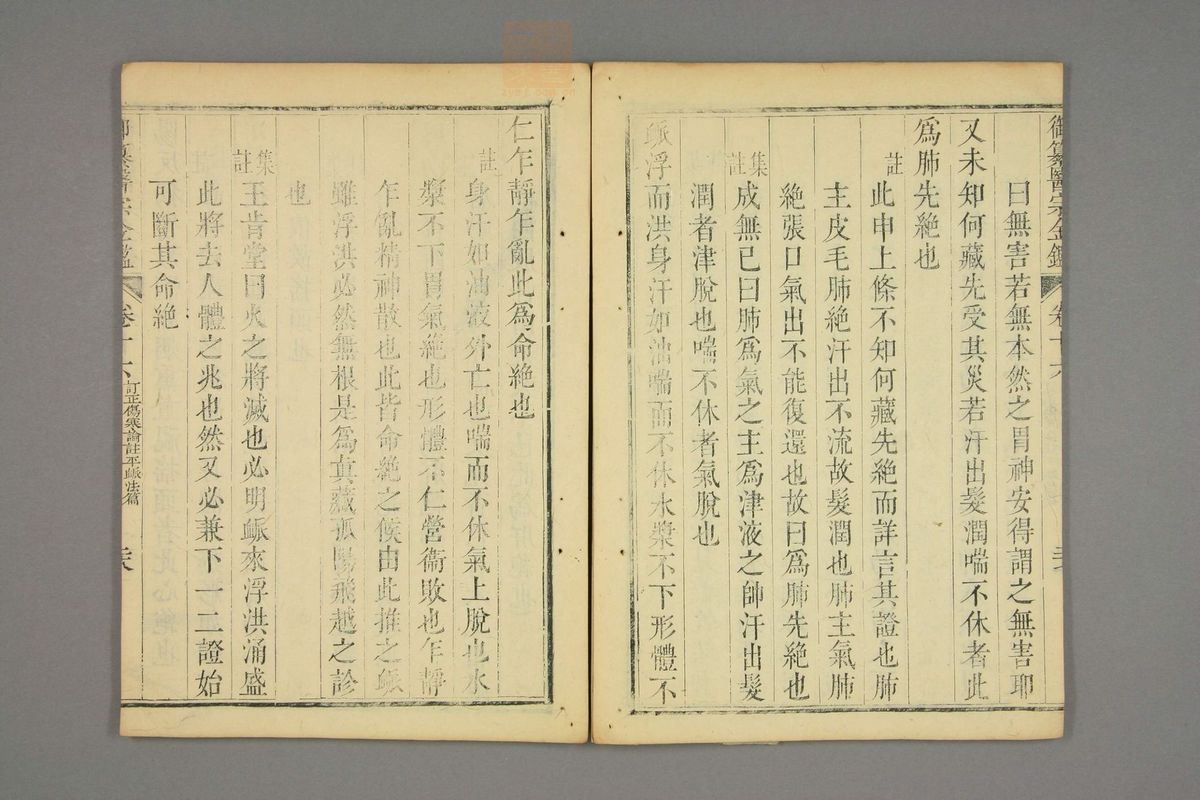 御纂醫宗金鑑 卷十六
曰無害若無本然之胃神安得謂之無害耶
又未知何藏先受其災若汗出髮潤喘不休者此
爲肺先絶也
註 此申上條不知何藏先絶而詳言其證也肺
主皮毛肺絶汗出不流故髮潤也肺主氣肺
絶張口氣出不能復還也故曰爲肺先絶也
集註 成無已曰肺爲氣之主爲津液之帥汗出髮
潤者津脫也喘不休者氣脫也
脈浮而洪身汗如油喘而不休水漿不下形體不
仁乍靜乍亂此爲命絶也
註 身汗如油液外亡也喘而不休氣上脫也水
漿不下胃氣絶也形體不仁營衞敗也乍靜
乍亂精神散也此皆命絶之候由此推之脈
雖浮洪必然無根是爲眞藏孤陽飛越之診
也
集註 王肯堂曰火之將滅也必明脈來浮洪涌盛
此將去人體之兆也然又必兼下一二證始
可斷其命絶
御纂醫宗金鑑 卷十六 訂正傷寒論註平脈法篇